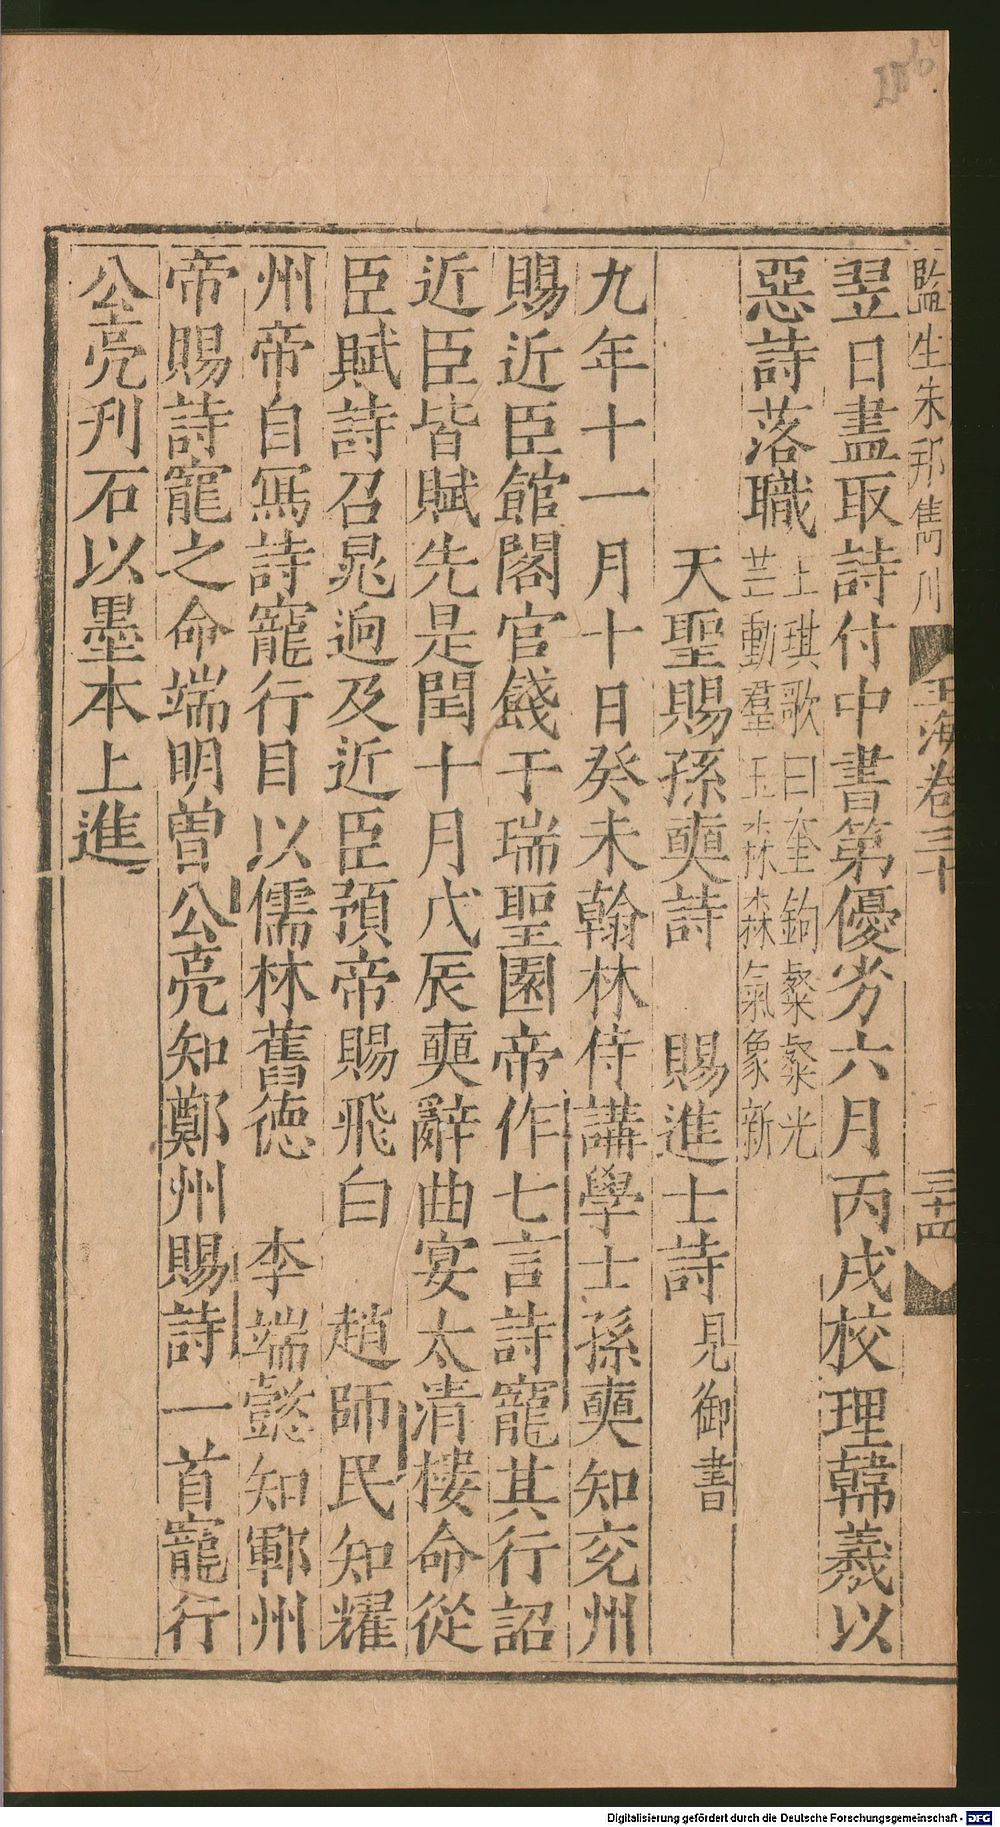 監生朱邦儁刊 玉海卷三十 三十四
翌日盡取詩付中書第優劣六月丙戌校理韓羲以
惡詩落職上琪歌曰奎鉤粲粲光
芒動羣玉森森氣象新
天聖賜孫奭詩 賜進士詩見御書
九年十一月十日癸未翰林侍講學士孫奭知兖州
賜近臣館閣官餞于瑞聖園帝作七言詩寵其行詔
近臣皆賦先是閏十月戊辰奭辭曲宴太清樓命從
臣賦詩召晁迥及近臣預帝賜飛白 趙師民知耀
州帝自寫詩寵行目以儒林舊德 李端懿知鄆州
帝賜詩寵之命端明曾公亮知鄭州賜詩一首寵行
公亮刋石以墨本上進
Digitalisierung gefördert durch die Deutsche Forschungsgemeinschaft - DFG